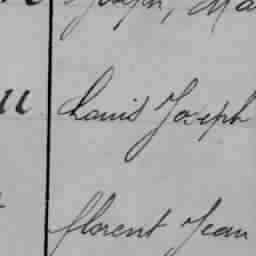 Joseph, Ma
u Louis Joseph
florent Jean